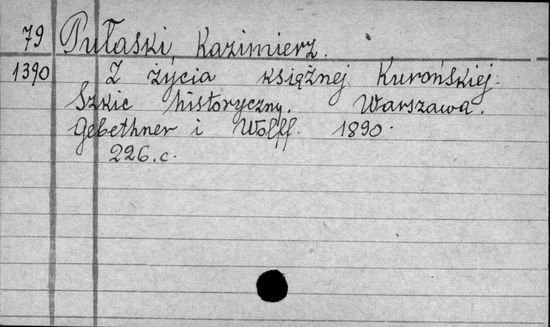 79 Pułaski, Kazimierz.
1390 Z życia księżnej Kurońskiej.
Szkic historyczny. Warszawa.
Gebethner i Wolff. 1890.
226.c.